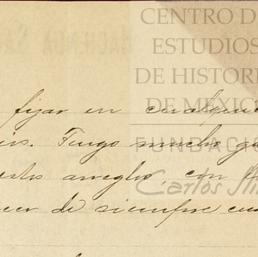 CENTRO DE
ESTUDIOS
DE HISTORI
DE MÉXICO
FUNDACIÓ
Carlos Slim
fijar en cualqui
Tengo mucho gu
arreglo, con
de siempre